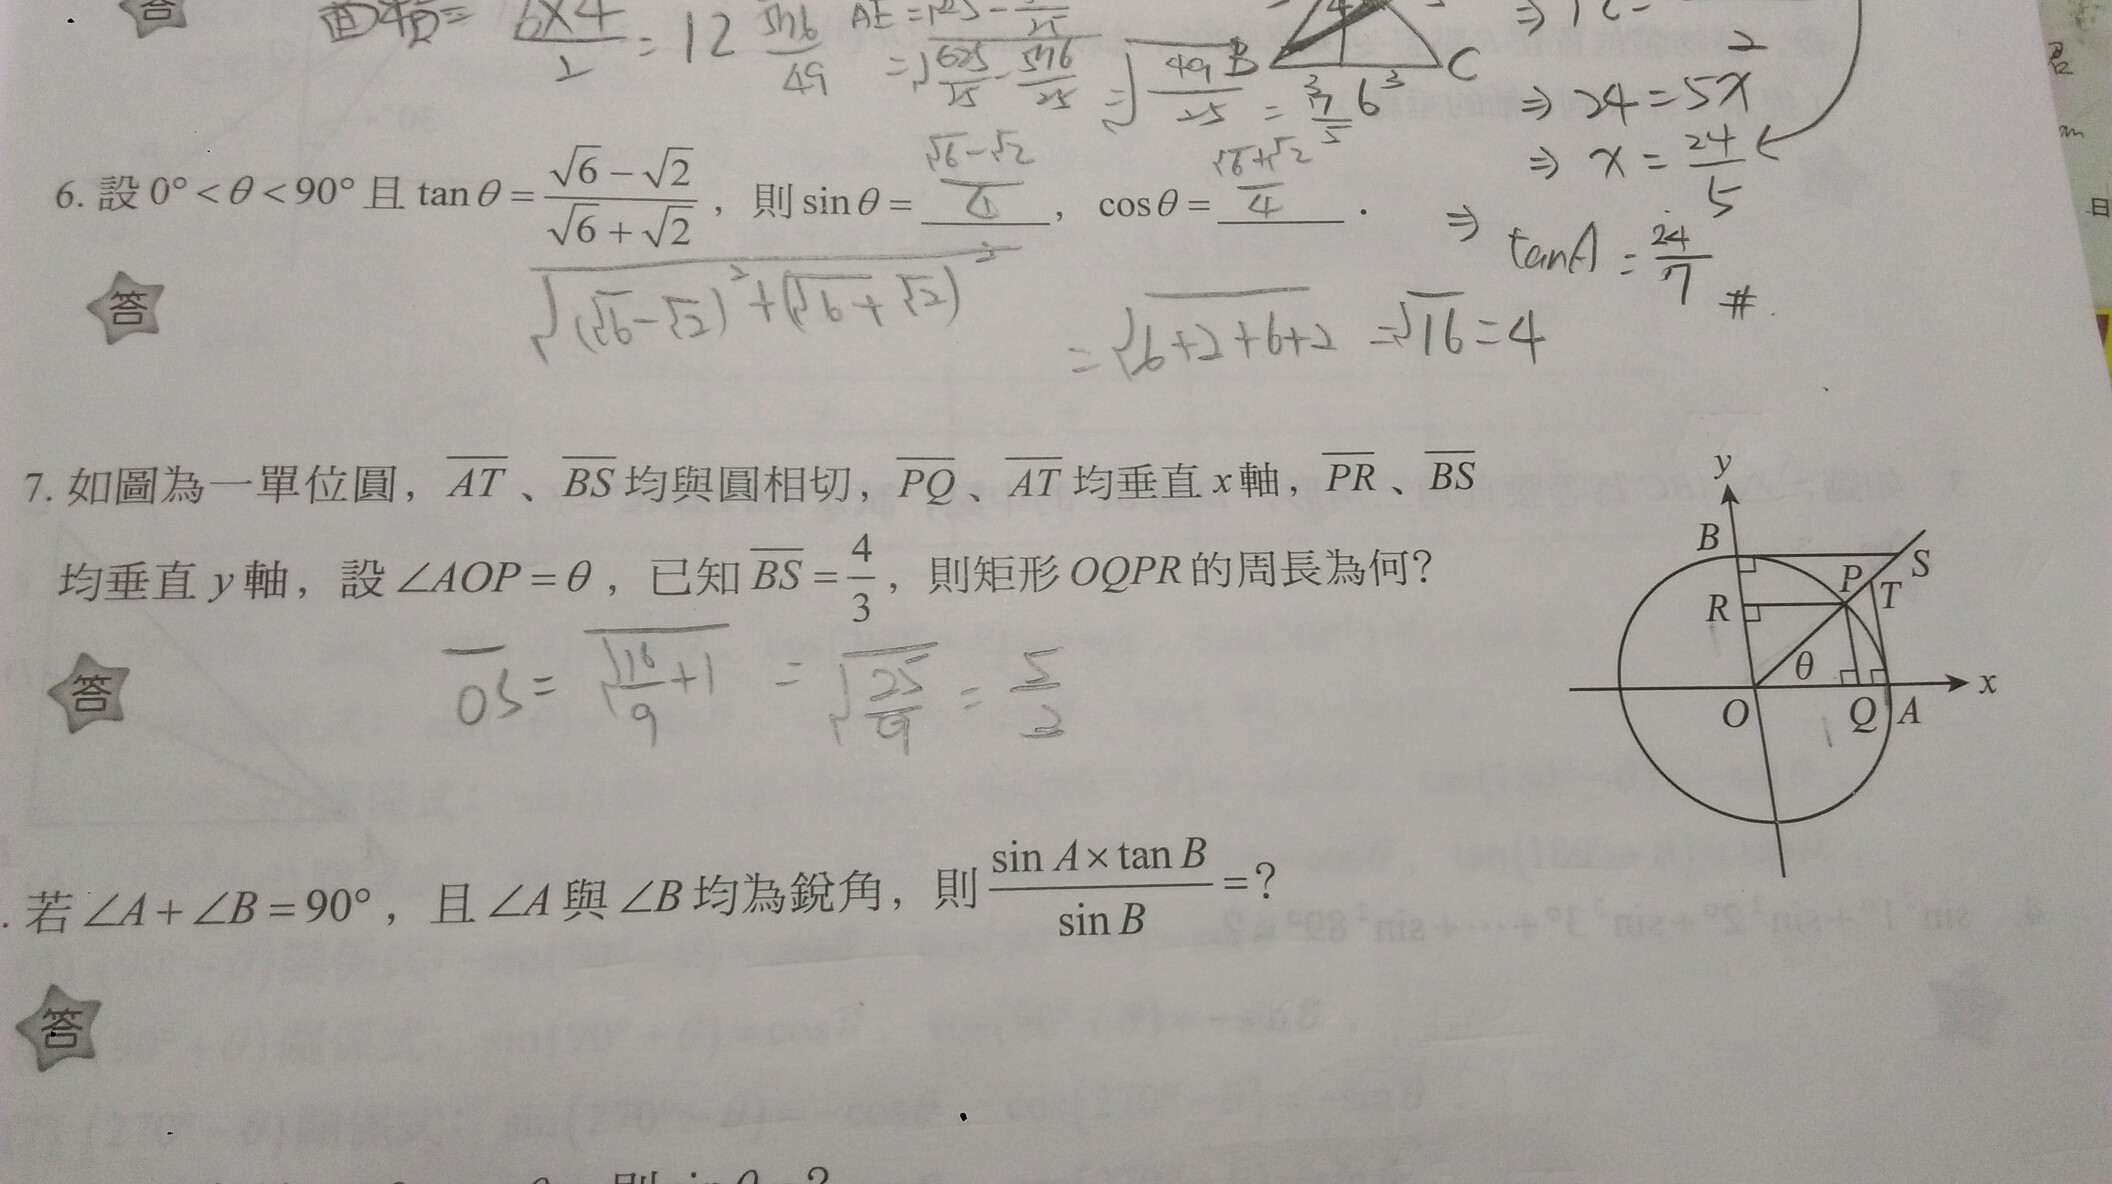 答 面積 = 6×4/2 = 12 576/49
= √(625/25 - 576/25) = √(49/25) = 7/5
B C 3 6 3
2
⇒ 24 = 5x
⇒ x = 24/5
⇒ tanA = 24/7 #
6. 設 0° < θ < 90° 且 tanθ = (√6 − √2)/(√6 + √2) ,則 sinθ = (√6-√2)/4 , cosθ = (√6+√2)/4 .
答 √((√6-√2)² + (√6+√2)²) = √(6+2+6+2) = √16 = 4
7. 如圖為一單位圓, AT 、 BS 均與圓相切, PQ 、 AT 均垂直 x 軸, PR 、 BS
均垂直 y 軸,設 ∠AOP = θ ,已知 BS = 4/3 ,則矩形 OQPR 的周長為何?
答 OS = √(16/9 + 1) = √(25/9) = 5/3
y
B S
P T
R
θ
x
O Q A
1
. 若 ∠A + ∠B = 90° ,且 ∠A 與 ∠B 均為銳角,則 (sin A × tan B)/(sin B) = ?
答